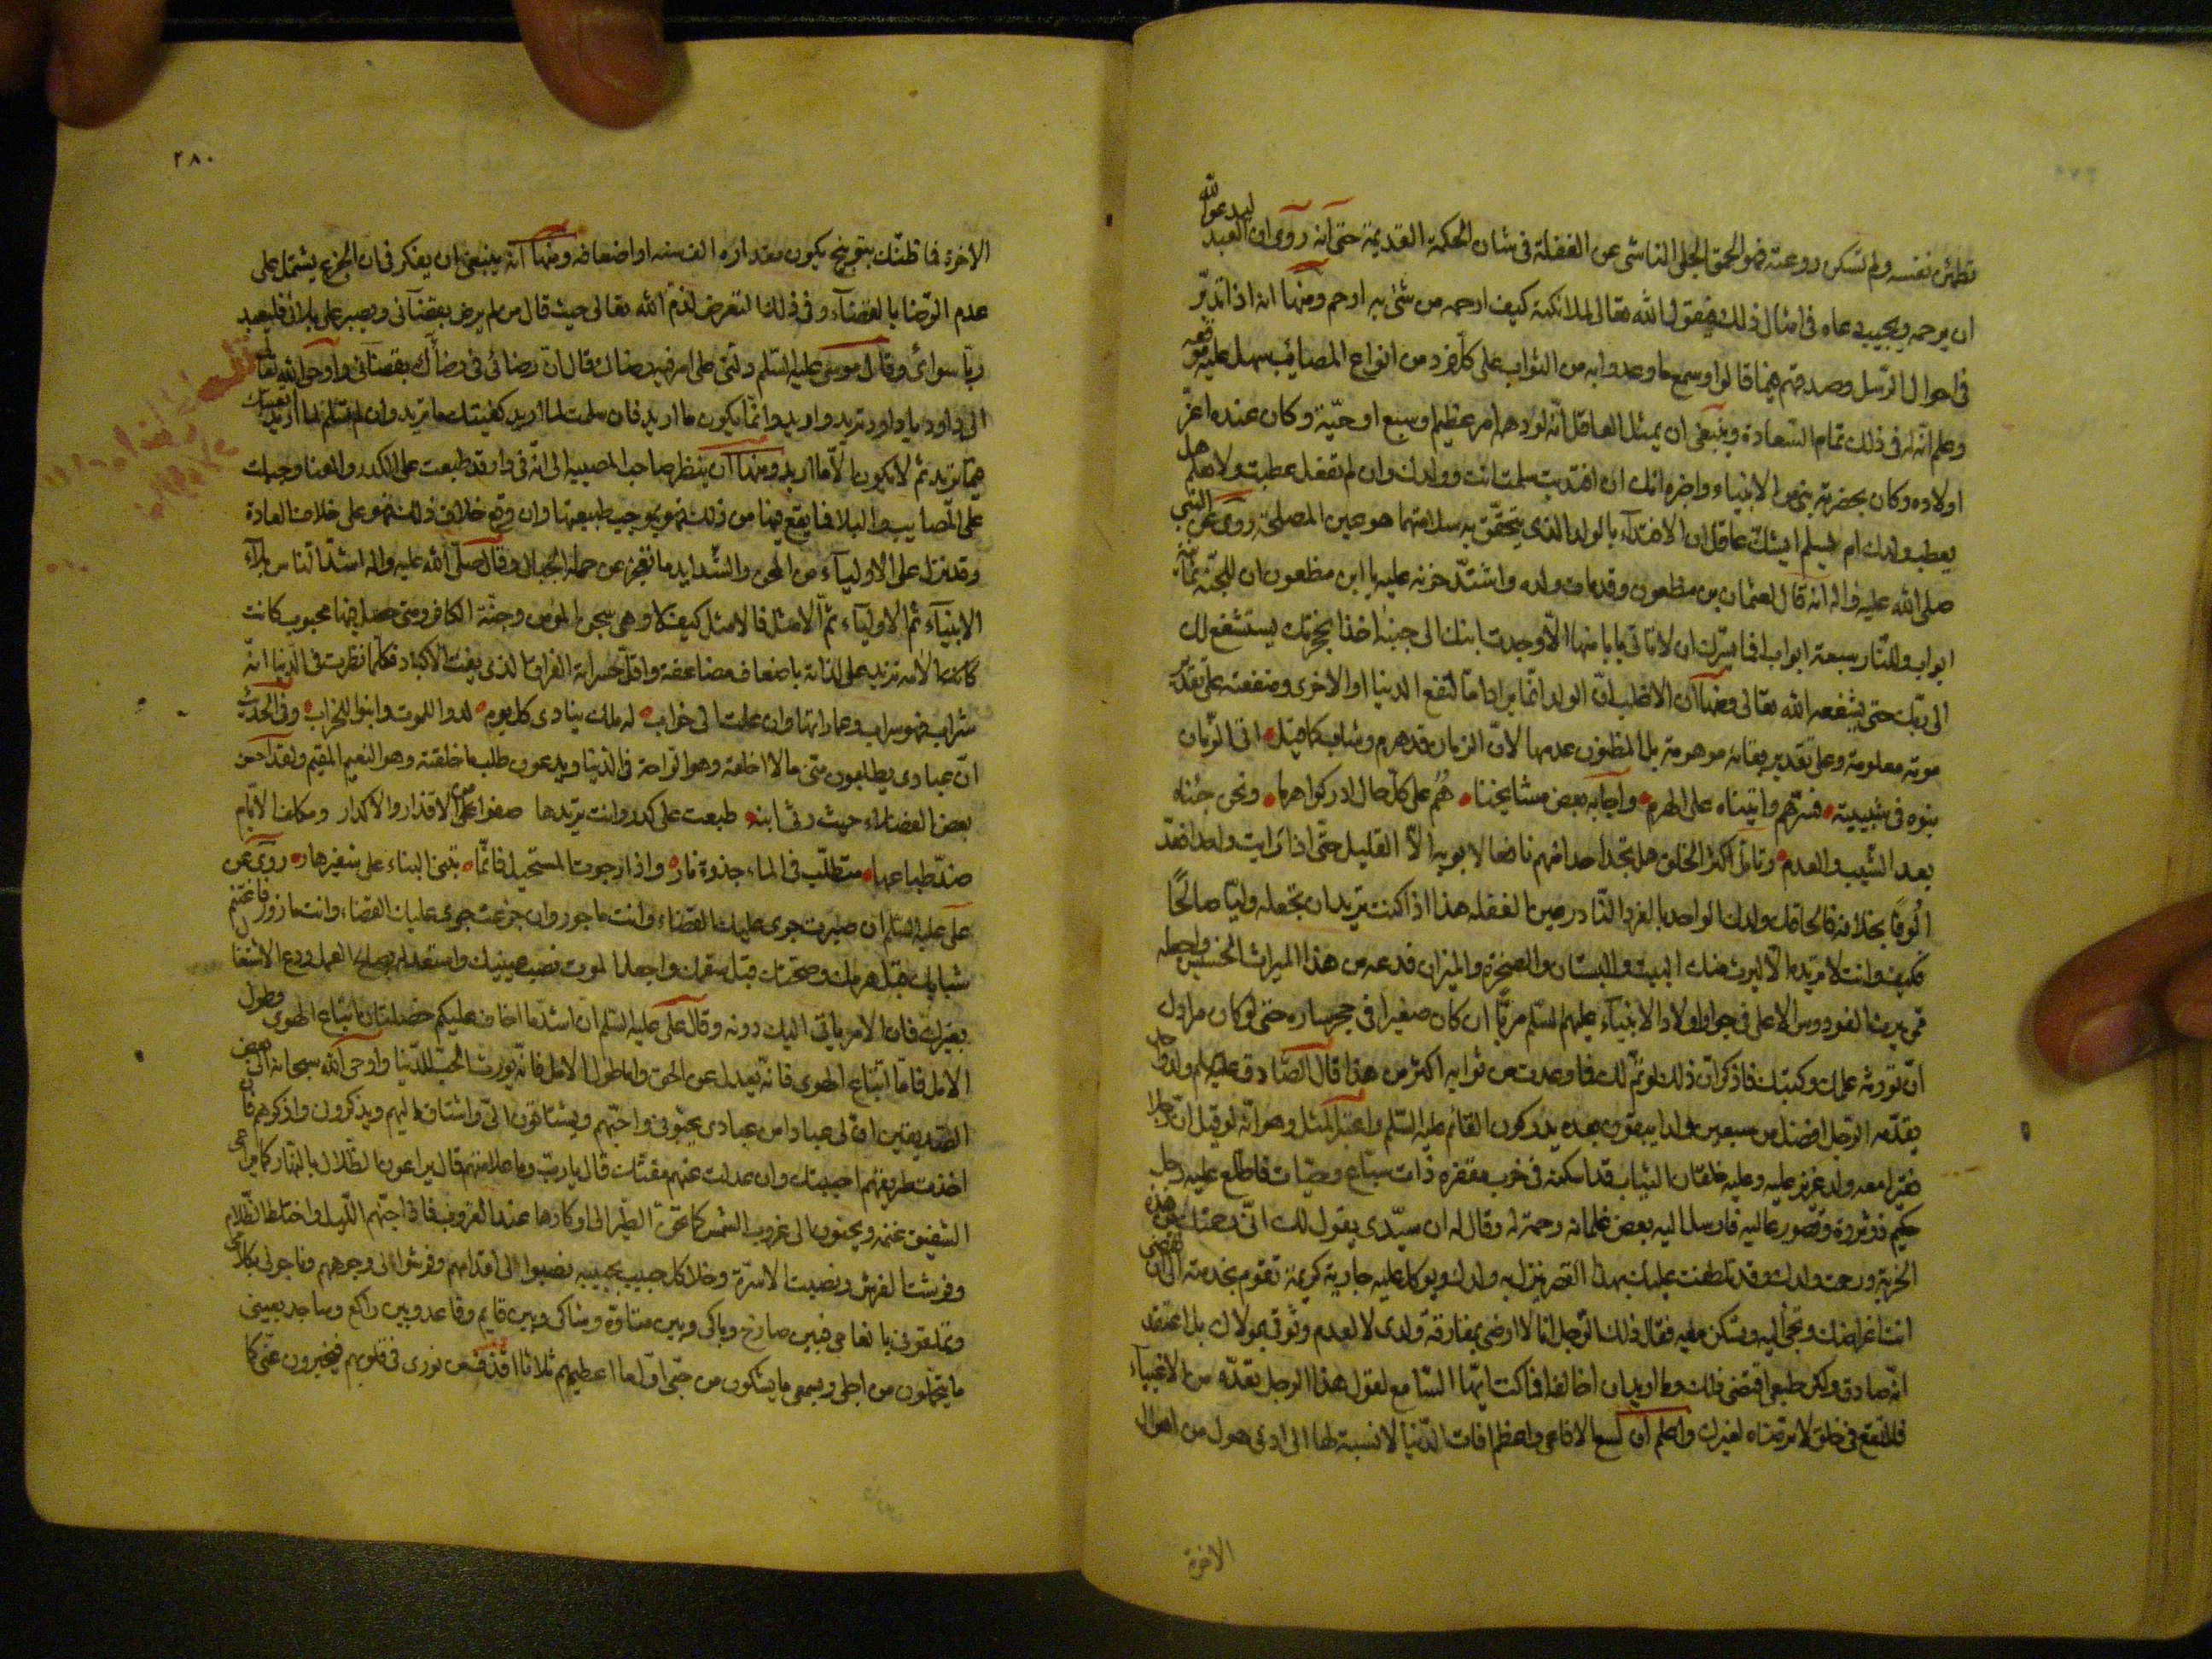 تطمئن نفسه ولم تسكن روعته فهو الحمق الجلى الناشى عن الغفلة فى شان الحكمة القديمة حتى انه روى ان العبد ليدعو الله
ان يرحمه ويجيب دعاه فى امثال ذلك فيقول الله تعالى لملائكته كيف ارحمه من شئ به ارحم ومنها انه اذا تدبر
فى احوال الرسل وصدقهم فيما قالوا وسمع ما وعدوا به من الثواب على كل فرد من انواع المصائب سهل عليه موقعه
وعلم ان له فى ذلك تمام السعادة وينبغى ان يمثل العاقل انه لو دهمه امر عظيم او سبع او حية وكان عنده اعز
اولاده وكان بحضرته نبى من الانبياء واخبره انك ان افتديت سلمت انت وولدك وان لم تفعل عطبت ولا تعلم هل
يعطب ولدك ام يسلم ايشك عاقل ان الافتداء بالولد الذى يتحقق به سلامتهما هو عين المصلحة روى عن النبى
صلى الله عليه واله انه قال لعثمان بن مظعون وقد مات ولده واشتد حزنه عليه يا ابن مظعون ان للجنة ثمانية
ابواب وللنار سبعة ابواب افما يسرك ان لا تاتى بابا منها الا وجدت ابنك الى جنبه اخذا بحجزتك يستشفع لك
الى ربك حتى يشفعه الله تعالى ومنها ان الاغلب ان الولد انما يراد اما لنفع الدنيا او الاخرى ومنفعته على تقدير
موته معلومة وعلى تقدير بقائه موهومة بل المظنون عدمها لان الزمان قد هرم وشاب كما قيل اتى الزمان
بنوه فى شبيبته فسرهم واتيناه على الهرم واجابه بعض مشايخنا هم على كل حال ادركوا هرما ونحن جئناه
بعد الشيب والعدم وتامل اكثر الخلق هل تجد احدا منهم نافعا لابويه الا القليل حتى اذا رايت واحدا فعد
الوفا بخلافه فالحاقك ولدك الواحد بالفرد النادر عين الغفله هذا اذا كنت تريد ان تجعله وليا صالحا
فكيف وانت لا تريده الا ليرث منك البيت والبستان والصخرة والميزان فدعه من هذا الميراث الخسيس واجعله
ممن يرث الفردوس الاعلى فى جوار اولاد الانبياء عليهم السلم مربا ان كان صغيرا فى حجر ساره حتى لو كان مرادك
ان تورثه علمك وكتبك فاذكر ان ذلك لو تم لك فما وعدت من ثوابه اكثر من هذا قال الصادق عليه السلم ولد واحد
يقدمه الرجل افضل من سبعين ولدا يبقون بعده يدركون القائم عليه السلم واعتبر المثل وهو انه لو قيل ان رجلا
فقيرا معه ولد عزيز عليه وعليه خلقان الثياب قد اسكنه فى خرب مقفره ذات سباع وحيات فاطلع عليه رجل
حكيم ذو ثروة وقصور عاليه فارسل اليه بعض غلمانه رحمة له وقال له ان سيدى يقول لك انى رحمتك من هذه
الخربة ورحمت ولدك وقد تلطفت عليك بهذا القصر ينزل به ولدك ويوكل عليه جارية كريمة تقوم بخدمته الى ان تقضى
انت اغراضك وتجئ اليه وتسكن معه فقال ذلك الرجل انا لا ارضى بمفارقة ولدى لا لعدم وثوقى بمولاك بل اعتقد
انه صادق ولكن طبعى اقتضى ذلك وما اريد ان اخالفه افما كنت ايها السامع لقول هذا الرجل تعده من الاغبياء
فلا تقع فى خلق لا ترضاه لغيرك واعلم ان لسع الافاعى واعظم افات الدنيا لا نسبة لها الى ادنى هول من اهوال
الاخرة
٢٨٠
الاخرة فما ظنك بتوبيخ يكون مقداره الف سنه او اضعافه ومنها انه ينبغى ان يفكر فى ان الجزع يشتمل على
عدم الرضا بالقضاء وفى ذلك التعرض لذم الله تعالى حيث قال من لم يرض بقضائى ويصبر على بلائى فليعبد
ربا سوائى وقال موسى عليه السلم دلنى على امر فيه رضاك قال ان رضائى فى رضاك بقضائى واوحى الله تعالى
الى داود يا داود تريد واريد وانما يكون ما اريد فان سلمت لما اريد كفيتك ما تريد وان لم تسلم لما اريد اتعبتك
فيما تريد ثم لا يكون الا ما اريد ومنها ان ينظر صاحب المصيبه الى انه فى دار قد طبعت على الكدر والعنا وجبلت
على المصايب والبلا فما يقع فيها من ذلك فهو بموجب طبيعتها وان وقع خلاف ذلك فهو على خلاف العادة
وقد نزل على الاولياء من المحن والشدايد ما تعجز عن حمله الجبال وقال صلى الله عليه واله اشد الناس بلاء
الانبياء ثم الاولياء ثم الامثل فالامثل كيف لا وهى سجن المؤمن وجنة الكافر ومتى حصل فيها محبوب كانت
الامه تزيد على لذاته باضعاف مضاعفه واقل حسراته الفراق الذى يفتت الاكباد فكلما نظرت فى الدنيا انه
شراب فهو سراب وعماراتها وان علت الى خراب له ملك ينادى كل يوم لدوا للموت وابنوا للخراب وفى الحديث
ان عبادى يطلبون منى ما لا اخلقه وهو الراحة فى الدنيا ويدعون طلب ما خلقته وهو النعيم المقيم ولقد احسن
بعض الفضلاء حيث رثى ابنه طبعت على كدر وانت تريدها صفوا من الاقذار والاكدار ومكلف الايام
ضد طباعها متطلب فى الماء جذوة نار واذا رجوت المستحيل فانما تبنى البناء على شفير هار روى عن
على عليه السلم ان صبرت جرى عليك القضاء وانت ماجور وان جزعت جرى عليك القضاء وانت مازور فاغتنم
شبابك قبل هرمك وصحتك قبل سقمك واجعل الموت نصب عينيك واستعد له بصالح العمل ودع الاشتغال
بغيرك فان الامر ياتى اليك دونه وقال على عليه السلم ان اشد ما اخاف عليكم خصلتان اتباع الهوى وطول
الامل فاما اتباع الهوى فانه يعدل عن الحق واما طول الامل فانه يورث الحب للدنيا واوحى الله سبحانه الى بعض
الصديقين ان لى عبادا من عبادى يحبونى واحبهم ويشتاقون الى واشتاق اليهم ويذكرون واذكرهم فان
اخذت طريقهم احببتك وان عدلت عنهم مقتك قال يا رب وما علامتهم قال يراعون الظلال بالنهار كما يراعى
الشفيق غنمه ويحنون الى غروب الشمس كما تحن الطير الى اوكارها عند الغروب فاذا جنهم الليل واختلط الظلام
وفرشت الفرش ونصبت الاسرة وخلا كل حبيب بحبيبه نصبوا الى اقدامهم وفرشوا الى وجوههم وناجونى بكلامى
وتملقونى بانعامى فبين صارخ وباكى وبين متاوه وشاكى وبين قايم وقاعد وبين راكع وساجد بعينى
ما يتحملون من اجلى وبسمعى ما يشكون من حبى اول ما اعطيهم ثلاثا اقذف من نورى فى قلوبهم فيخبرون عنى كما